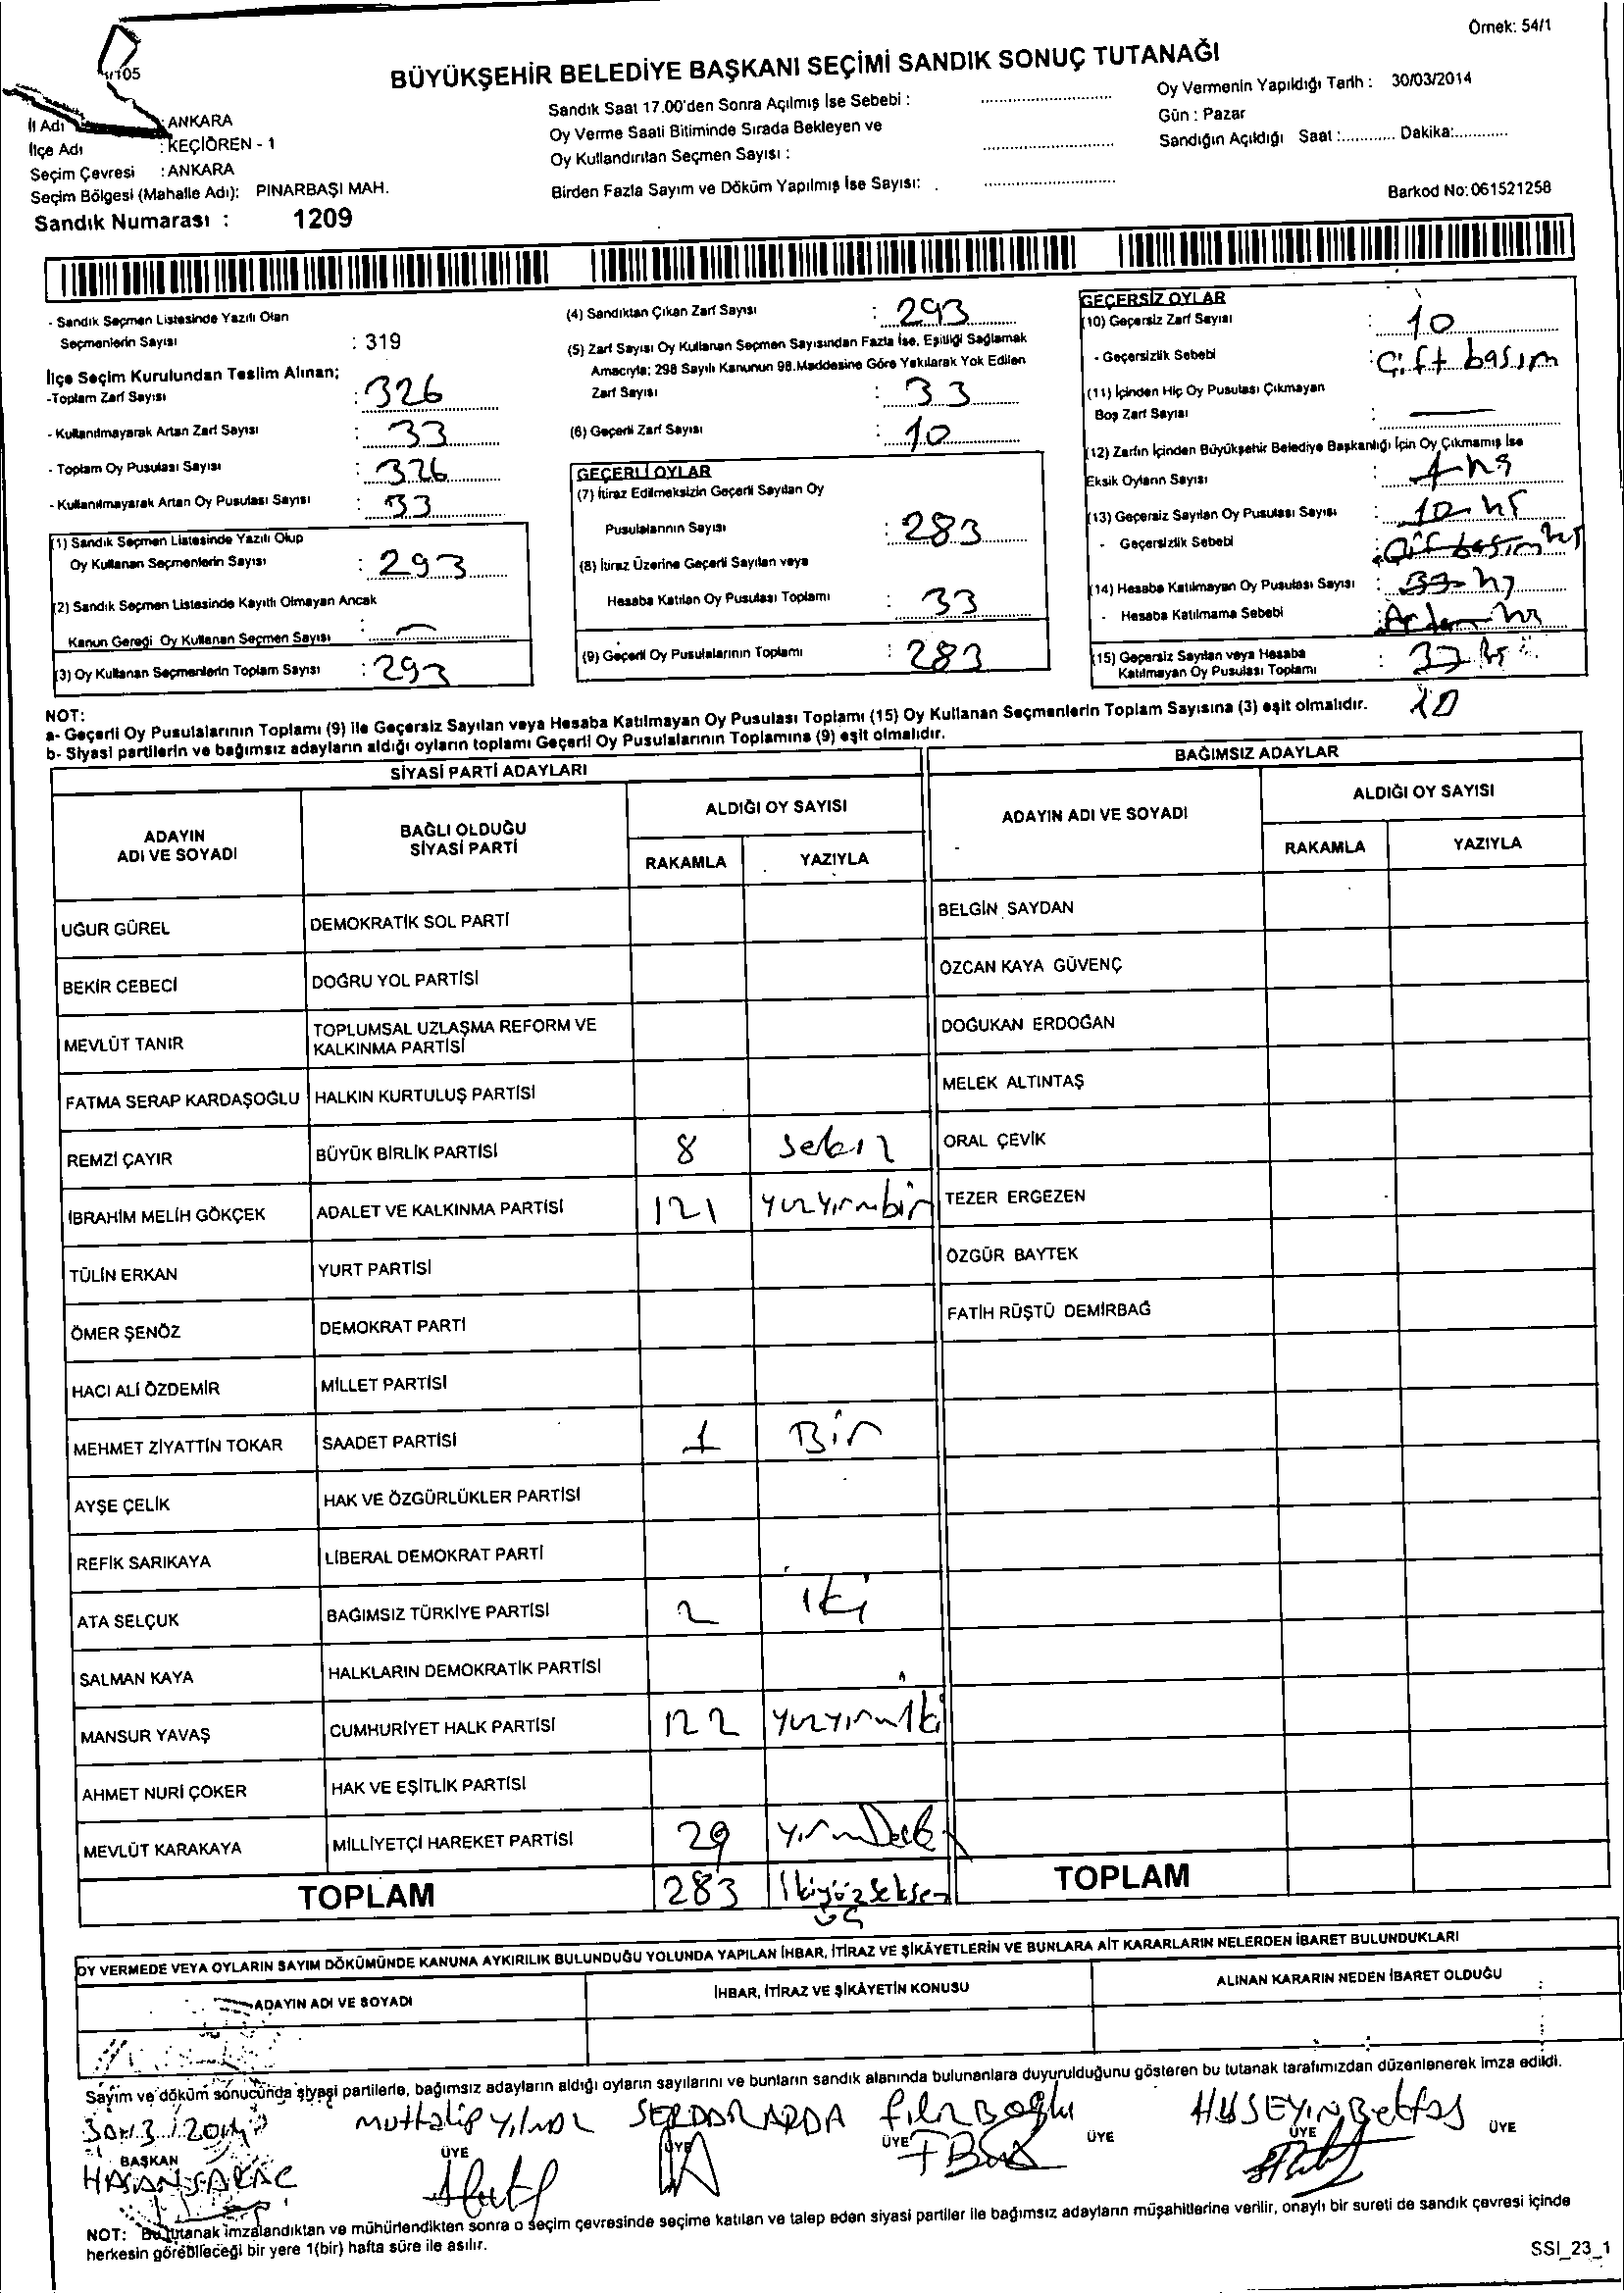 Örnek: 54/1
BÜYÜKŞEHİR BELEDİYE BAŞKANI SEÇİMİ SANDIK SONUÇ TUTANAĞI
İl Adı : ANKARA
İlçe Adı : KEÇİÖREN - 1
Seçim Çevresi : ANKARA
Seçim Bölgesi (Mahalle Adı): PINARBAŞI MAH.
Sandık Numarası : 1209
Sandık Saat 17.00'den Sonra Açılmış İse Sebebi :
Oy Verme Saati Bitiminde Sırada Bekleyen ve
Oy Kullandırılan Seçmen Sayısı :
Birden Fazla Sayım ve Döküm Yapılmış İse Sayısı:
Oy Vermenin Yapıldığı Tarih : 30/03/2014
Gün : Pazar
Sandığın Açıldığı Saat :............ Dakika:............
Barkod No: 061521258
- Sandık Seçmen Listesinde Yazılı Olan
Seçmenlerin Sayısı : 319
İlçe Seçim Kurulundan Teslim Alınan;
-Toplam Zarf Sayısı : 326
- Kullanılmayarak Artan Zarf Sayısı : 33
- Toplam Oy Pusulası Sayısı : 326
- Kullanılmayarak Artan Oy Pusulası Sayısı : 33
(1) Sandık Seçmen Listesinde Yazılı Olup
Oy Kullanan Seçmenlerin Sayısı : 293
(2) Sandık Seçmen Listesinde Kayıtlı Olmayan Ancak
Kanun Gereği Oy Kullanan Seçmen Sayısı : —
(3) Oy Kullanan Seçmenlerin Toplam Sayısı : 293
(4) Sandıktan Çıkan Zarf Sayısı : 293
(5) Zarf Sayısı Oy Kullanan Seçmen Sayısından Fazla İse, Eşitliği Sağlamak
Amacıyla; 298 Sayılı Kanunun 98.Maddesine Göre Yakılarak Yok Edilen
Zarf Sayısı : 33
(6) Geçerli Zarf Sayısı : 10
GEÇERLİ OYLAR
(7) İtiraz Edilmeksizin Geçerli Sayılan Oy
Pusulalarının Sayısı : 283
(8) İtiraz Üzerine Geçerli Sayılan veya
Hesaba Katılan Oy Pusulası Toplamı : 33
(9) Geçerli Oy Pusulalarının Toplamı : 283
GEÇERSİZ OYLAR
(10) Geçersiz Zarf Sayısı : 10
- Geçersizlik Sebebi : Çift basım
(11) İçinden Hiç Oy Pusulası Çıkmayan
Boş Zarf Sayısı : —
(12) Zarfın İçinden Büyükşehir Belediye Başkanlığı İçin Oy Çıkmamış İse
Eksik Oyların Sayısı :
(13) Geçersiz Sayılan Oy Pusulası Sayısı : 10
- Geçersizlik Sebebi : Çift basım
(14) Hesaba Katılmayan Oy Pusulası Sayısı : 33
- Hesaba Katılmama Sebebi :
(15) Geçersiz Sayılan veya Hesaba
Katılmayan Oy Pusulası Toplamı : 33
10
NOT:
a- Geçerli Oy Pusulalarının Toplamı (9) ile Geçersiz Sayılan veya Hesaba Katılmayan Oy Pusulası Toplamı (15) Oy Kullanan Seçmenlerin Toplam Sayısına (3) eşit olmalıdır.
b- Siyasi partilerin ve bağımsız adayların aldığı oyların toplamı Geçerli Oy Pusulalarının Toplamına (9) eşit olmalıdır.
SİYASİ PARTİ ADAYLARI
ADAYIN ADI VE SOYADI
BAĞLI OLDUĞU SİYASİ PARTİ
ALDIĞI OY SAYISI
RAKAMLA YAZIYLA
UĞUR GÜREL DEMOKRATİK SOL PARTİ
BEKİR CEBECİ DOĞRU YOL PARTİSİ
MEVLÜT TANIR TOPLUMSAL UZLAŞMA REFORM VE KALKINMA PARTİSİ
FATMA SERAP KARDAŞOĞLU HALKIN KURTULUŞ PARTİSİ
REMZİ ÇAYIR BÜYÜK BİRLİK PARTİSİ 8 sekiz
İBRAHİM MELİH GÖKÇEK ADALET VE KALKINMA PARTİSİ 121 yuzyirmbir
TÜLİN ERKAN YURT PARTİSİ
ÖMER ŞENÖZ DEMOKRAT PARTİ
HACI ALİ ÖZDEMİR MİLLET PARTİSİ
MEHMET ZİYATTİN TOKAR SAADET PARTİSİ 1 Bir
AYŞE ÇELİK HAK VE ÖZGÜRLÜKLER PARTİSİ
REFİK SARIKAYA LİBERAL DEMOKRAT PARTİ
ATA SELÇUK BAĞIMSIZ TÜRKİYE PARTİSİ 2 iki
SALMAN KAYA HALKLARIN DEMOKRATİK PARTİSİ
MANSUR YAVAŞ CUMHURİYET HALK PARTİSİ 122 yuzyirmiki
AHMET NURİ ÇOKER HAK VE EŞİTLİK PARTİSİ
MEVLÜT KARAKAYA MİLLİYETÇİ HAREKET PARTİSİ 29
TOPLAM 283 ikiyüzseksen
üç
BAĞIMSIZ ADAYLAR
ADAYIN ADI VE SOYADI
ALDIĞI OY SAYISI
RAKAMLA YAZIYLA
BELGİN SAYDAN
ÖZCAN KAYA GÜVENÇ
DOĞUKAN ERDOĞAN
MELEK ALTINTAŞ
ORAL ÇEVİK
TEZER ERGEZEN
ÖZGÜR BAYTEK
FATİH RÜŞTÜ DEMİRBAĞ
TOPLAM
OY VERMEDE VEYA OYLARIN SAYIM DÖKÜMÜNDE KANUNA AYKIRILIK BULUNDUĞU YOLUNDA YAPILAN İHBAR, İTİRAZ VE ŞİKÂYETLERİN VE BUNLARA AİT KARARLARIN NELERDEN İBARET BULUNDUKLARI
ADAYIN ADI VE SOYADI
İHBAR, İTİRAZ VE ŞİKÂYETİN KONUSU
ALINAN KARARIN NEDEN İBARET OLDUĞU
Sayım ve döküm sonucunda siyasi partilerle, bağımsız adayların aldığı oyların sayılarını ve bunların sandık alanında bulunanlara duyurulduğunu gösteren bu tutanak tarafımızdan düzenlenerek imza edildi.
Muttalip Yılmaz SERDAR ARDA Filiz Boğlu HÜSEYİN Bektaş
BAŞKAN ÜYE ÜYE ÜYE ÜYE ÜYE ÜYE
HASAN SARAÇ
NOT: Bu tutanak imzalandıktan ve mühürlendikten sonra o seçim çevresinde seçime katılan ve talep eden siyasi partiler ile bağımsız adayların müşahitlerine verilir, onaylı bir sureti de sandık çevresi içinde
herkesin görebileceği bir yere 1(bir) hafta süre ile asılır.
SSI_23_1